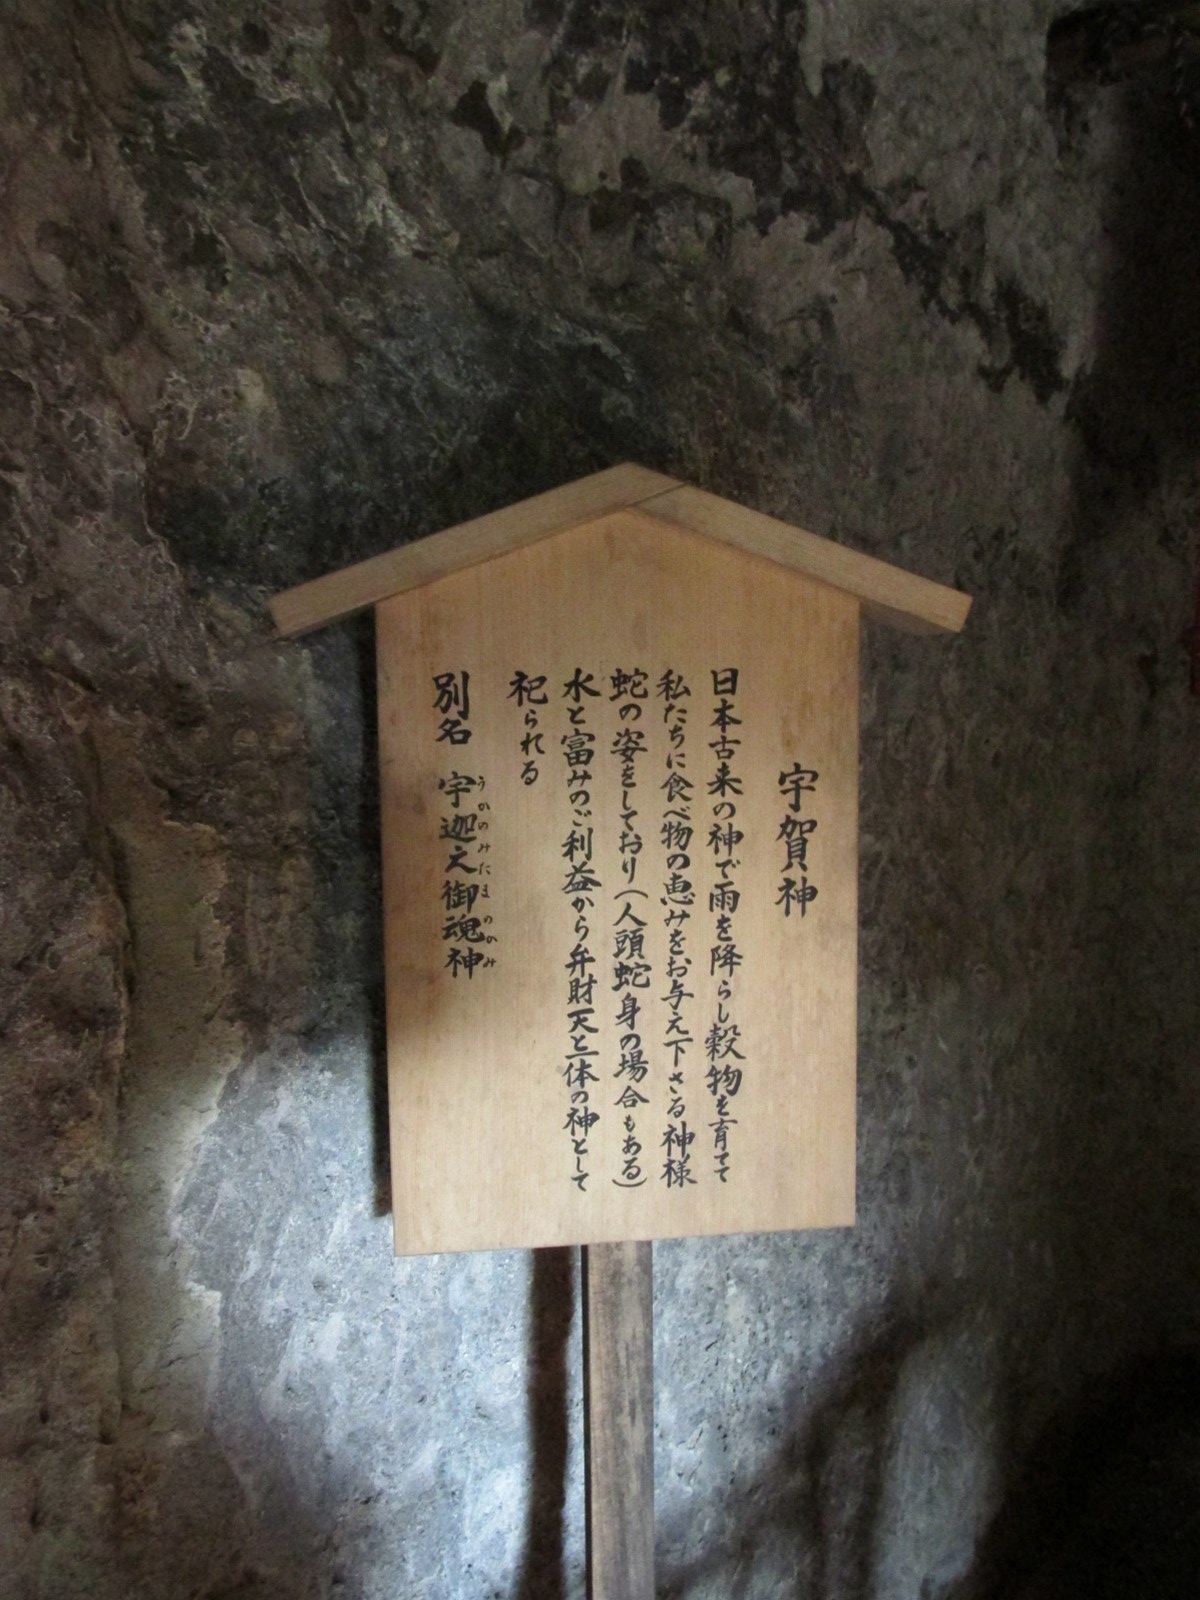 宇賀神
日本古来の神で雨を降らし穀物を育てて
私たちに食べ物の恵みをお与え下さる神様
蛇の姿をしており（人頭蛇身の場合もある）
水と富みのご利益から弁財天と一体の神として
祀られる
別名　宇迦之御魂神
うかのみたまののみ